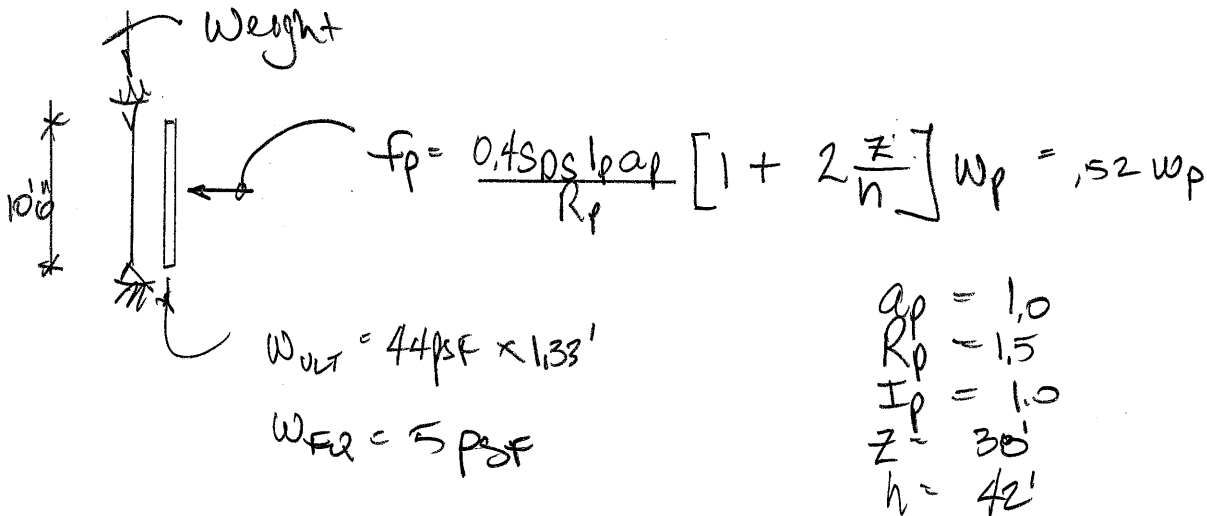 Weight
10'6"
fp = 0.4 SDS Ip ap / Rp [1 + 2 z/h] Wp = .52 Wp
WULT = 44psf x 1.33'
WEQ = 5 psf
ap = 1.0
Rp = 1.5
Ip = 1.0
z =
h = 42'